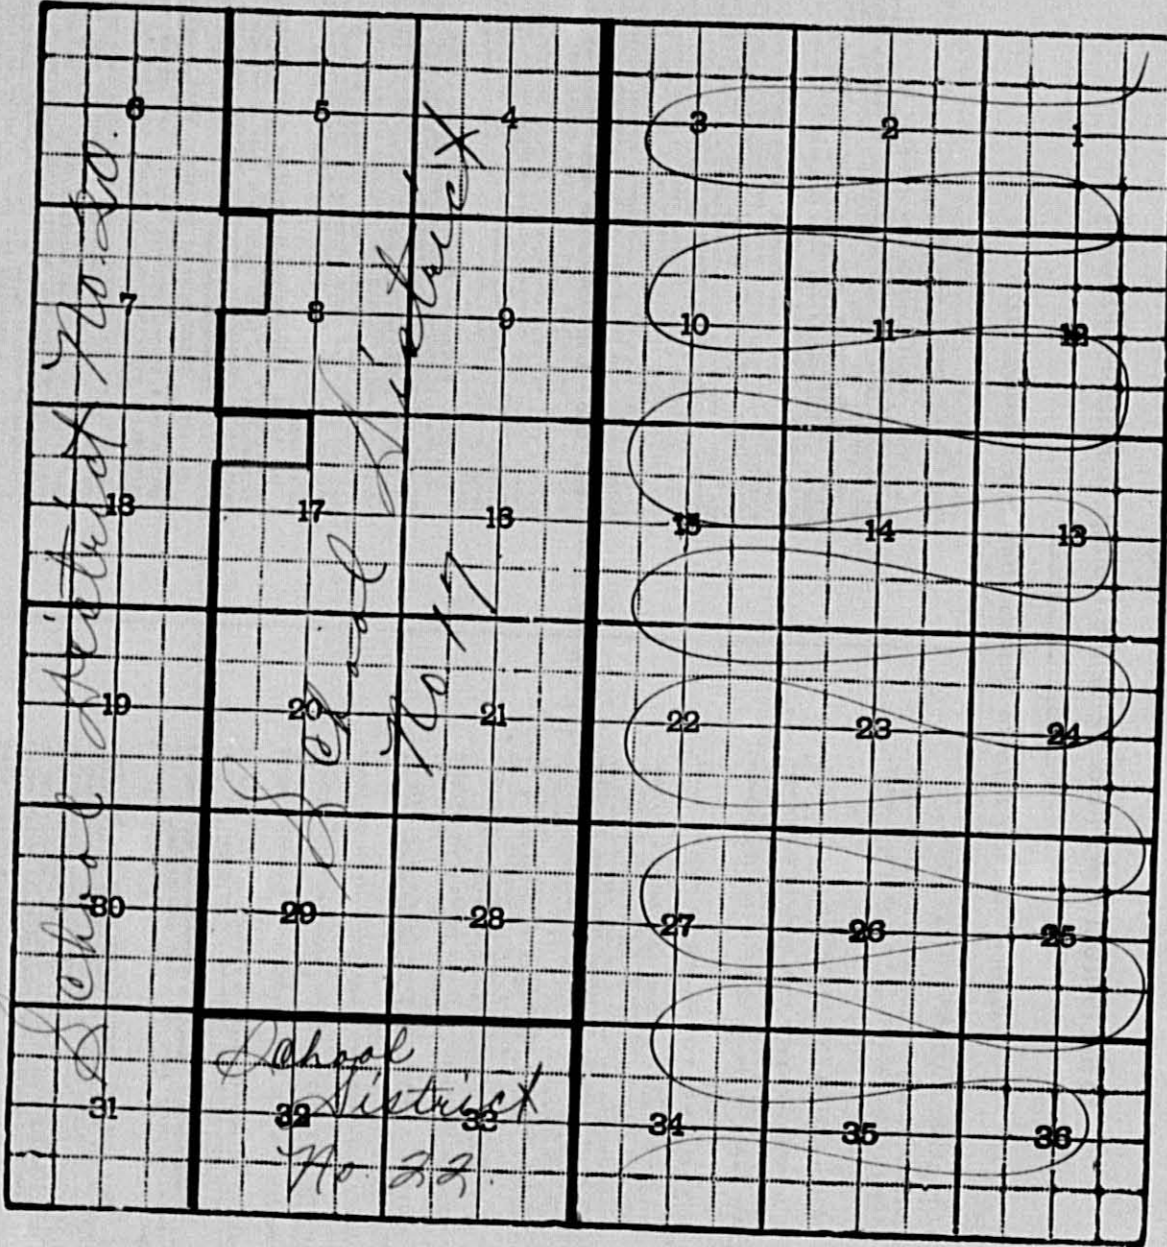 6 5 4 3 2 1
7 8 9 10 11 12
18 17 16 15 14 13
19 20 21 22 23 24
30 29 28 27 26 25
31 32 33 34 35 36
School District No. 20.
School District
No 17
School
District
No. 22.